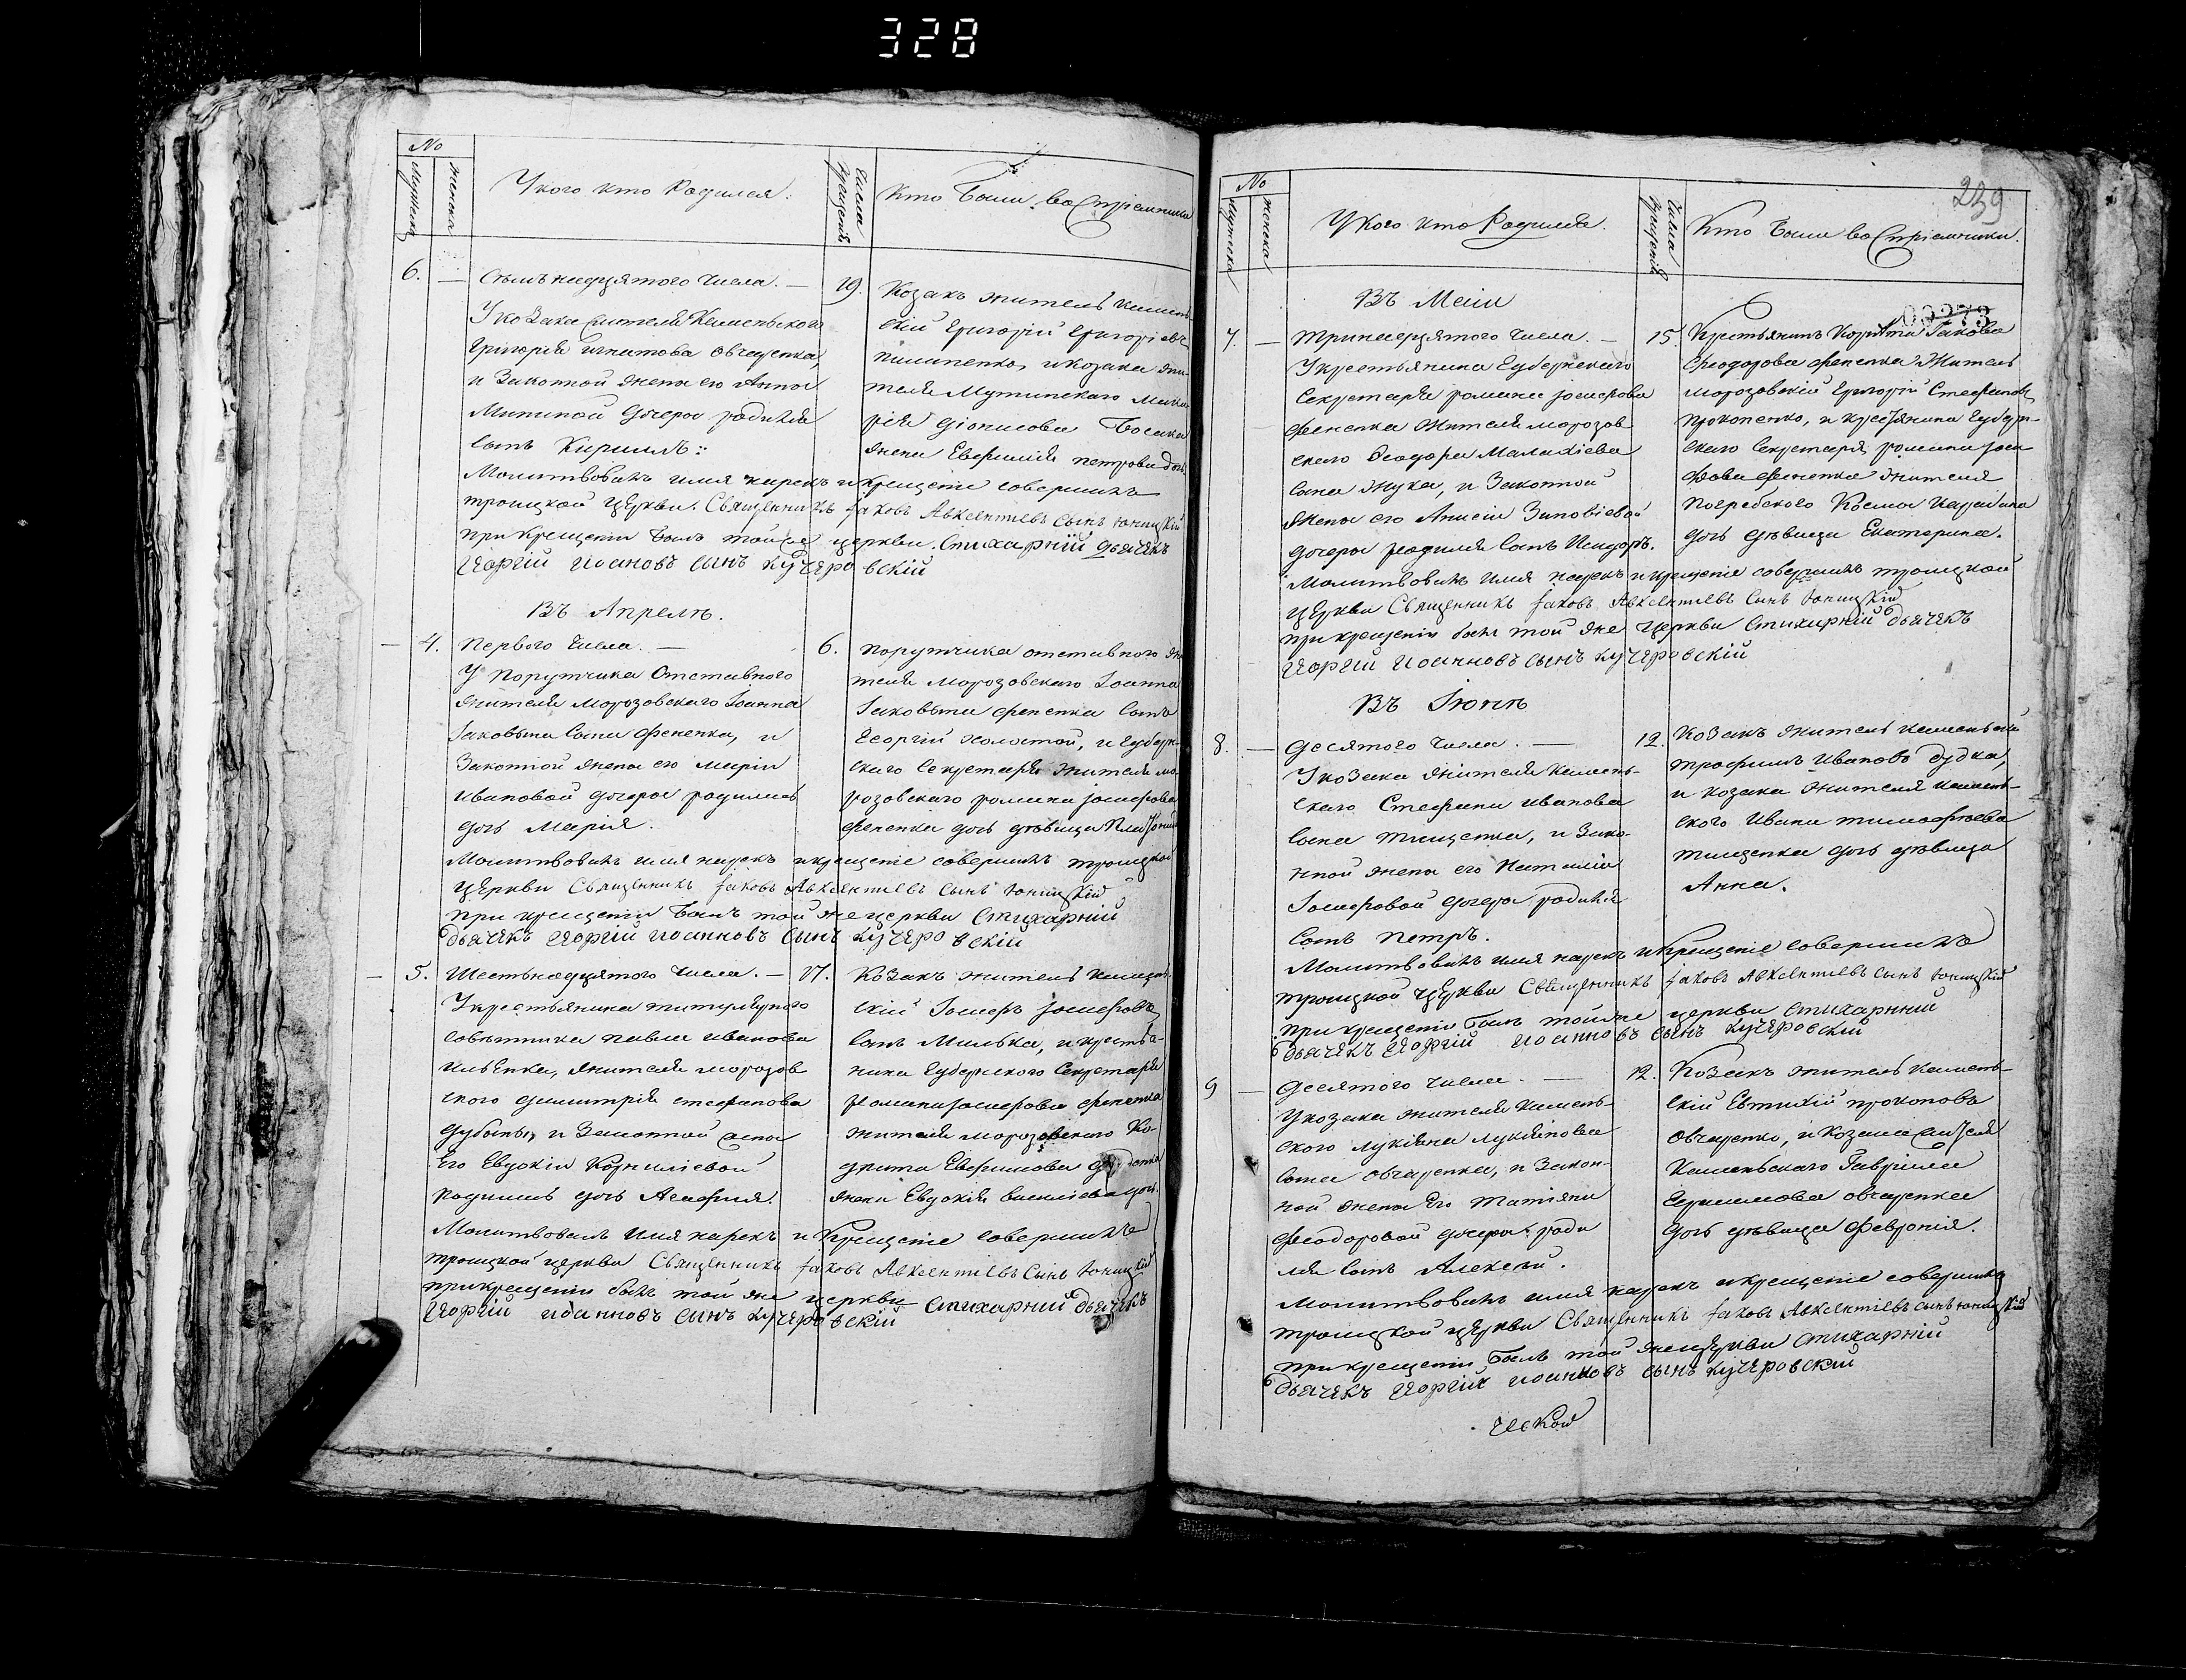 328
No
Мужеска
Женска
У кого кто Родился.
Числа крещенія
Кто Были восприемники
6. — Семьнадцятого числа. — 19.
У козака жителя Каменьского
Григорія Игнатова Овчаренка,
и Законной жены его Анны
Мининой дочеры родился
сынъ Кириллъ:
Козакъ житель Каменьскій Григорій Григоріевъ
Пилипенко, и козака жи-
теля Мутинскаго
Діонисова
жена Евфимія Петрова дочь
Молитвовалъ имя нарекъ и крещеніе совершилъ
троицкой церкви. Священникъ Іаковъ Авксентіевъ сынъ Юницкій
при крещеніи былъ тойже церкви. Стихарній дьячекъ
Георгій Иоановъ сынъ Кучеровскій
Въ Апреле.
— 4. Первого числа. — 6.
У Порутчика Отставного
жителя Морозовскаго Іоанна
Іаковлева сына Фененка, и
Законной жены его Маріи
Ивановой дочеры родилась
дочь Марія.
Порутчика отставного жи
теля Морозовскаго Іоанна
Іаковлева Фененка сынъ
Георгій холостой, и Губерн-
скаго Секретаря жителя мо-
розовскаго Романа Іосифова
Фененка дочь девица
Молитвовалъ имя нарекъ и крещеніе совершилъ троицкой
церкви Священникъ Іаковъ Авксентіевъ сынъ Юницкій
при крещеніи Былъ той же церкви Стихарній
дьячекъ Георгій Иоанновъ сынъ Кучеровскій
— 5. Шестьнадцятого числа. — 17.
У крестьянина титулярного
советника Павла Иванова
Ильенка, жителя Морозов
ского Димитрія Стефанова
и Законной жены
Его Евдокіи Корниліевой
Родилась дочь Агафия.
Козакъ житель Камень-
скій Іосифъ Іосифовъ
сынъ Милька, и крестья-
нина Губернского Секретаря
Романа Іосифова Фененка
жителя Морозовского Ко-
драта Евфимова
жена Евдокія Василіева дочь.
Молитвовалъ Имя нарекъ и Крещеніе совершилъ
троицкой церкви Священникъ Іаковъ Авксентіевъ Сынъ Юницкій
при крещеніи былъ той же церкви Стихарній дьячекъ
Георгій Иоанновъ сынъ Кучеровскій
239
No
Мужеска
Женска
У Кого кто Родился.
Числа крещенія
Кто Были восприемники.
00273
Въ Маіи
7. — Тринадцятого числа. — 15.
У крестьянина Губернскаго
Секретаря Романа Іосифова
Фененка жителя Морозов
скаго Феодора Малахіева
сына Жука, и Законной
жены его Анисіи Зиновіевой
дочеры родился сынъ Исидоръ.
Крестьянинъ Корнета Іакова
Феодорова Фененка Житель
Морозовскій Григорій Стефановъ
Прокопенко, и крестьянина Губерн-
скаго Секретаря Романа Іоси
фова Фененка жителя
Погребского Космы
дочь девица Екатерина.
Молитвовалъ имя нарекъ и крещеніе совершилъ троицкой
церкви Священникъ Іаковъ Авксентіевъ Сынъ Юницкій
при крещеніи былъ той же церкви Стихарній дьячекъ
Георгій Иоанновъ сынъ Кучеровскій
Въ Іюне
8. — Десятого числа. — 12.
У козака жителя Камень-
скаго Стефана Иванова
сына Тищенка, и Зако-
нной жены его Наталіи
Іосифовой дочеры родился
сынъ Петръ.
Козакъ житель Каменьскій
Трофимъ Ивановъ Дудка,
и козака жителя Камень-
ского Ивана Тимофеева
Тищенка дочь девица
Анна.
Молитвовалъ имя нарекъ и крещеніе совершилъ
троицкой церкви Священникъ Іаковъ Авксентіевъ сынъ Юницкій
при крещеніи былъ тойже церкви стихарный
дьячекъ Георгій Иоанновъ сынъ Кучеровскій
9 — Десятого числа. — 12.
У козака жителя Камень-
ского Лукіяна Лукіянова
сына Овчаренка, и Закон-
ной жены Его Татіяны
Феодоровой дочеры роди
лся сынъ Алексей.
Козакъ житель Камень-
скій Евтихій Прокоповъ
Овчаренко, и Козака жителя
Каменьскаго Гавріила
Герасимова Овчаренка
дочь девица Февронія.
Молитвовалъ имя нарекъ и крещеніе совершилъ
троицкой церкви Священникъ Іаковъ Авксентіевъ сынъ Юницкій
при крещеніи Былъ той же церкви стихарній
дьячекъ Георгій Иоанновъ сынъ Кучеровскій